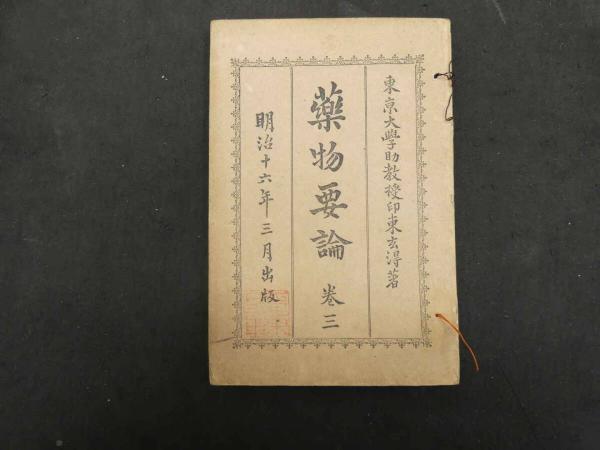 東京大學助教授印東玄得著
藥物要論 巻三
明治十六年三月出版